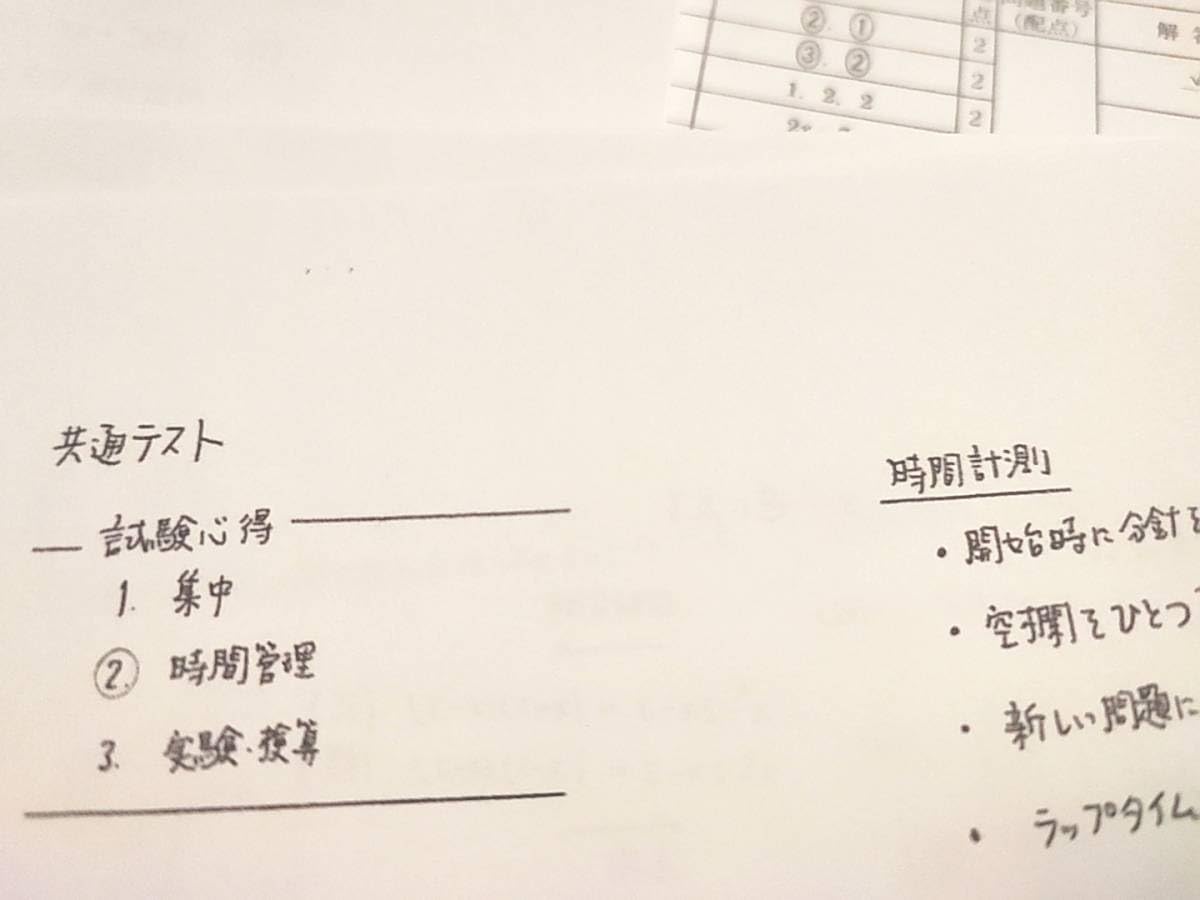 ②. ①
③. ②
1. 2. 2
点
2
2
2
問題番号
(配点)
解
共通テスト
試験心得
1. 集中
②. 時間管理
3. 実験・検算
時間計測
・開始時に分針を
・空欄をひとつ
・新しい問題に
・ラップタイム